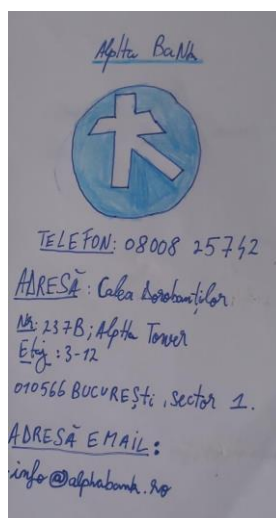 Alpha Bank
TELEFON: 08008 25742
ADRESĂ: Calea Dorobanților,
Nr: 237B; Alpha Tower
Etaj: 3-12
010566 BUCUREȘTI, sector 1.
ADRESĂ EMAIL:
info@alphabank.ro